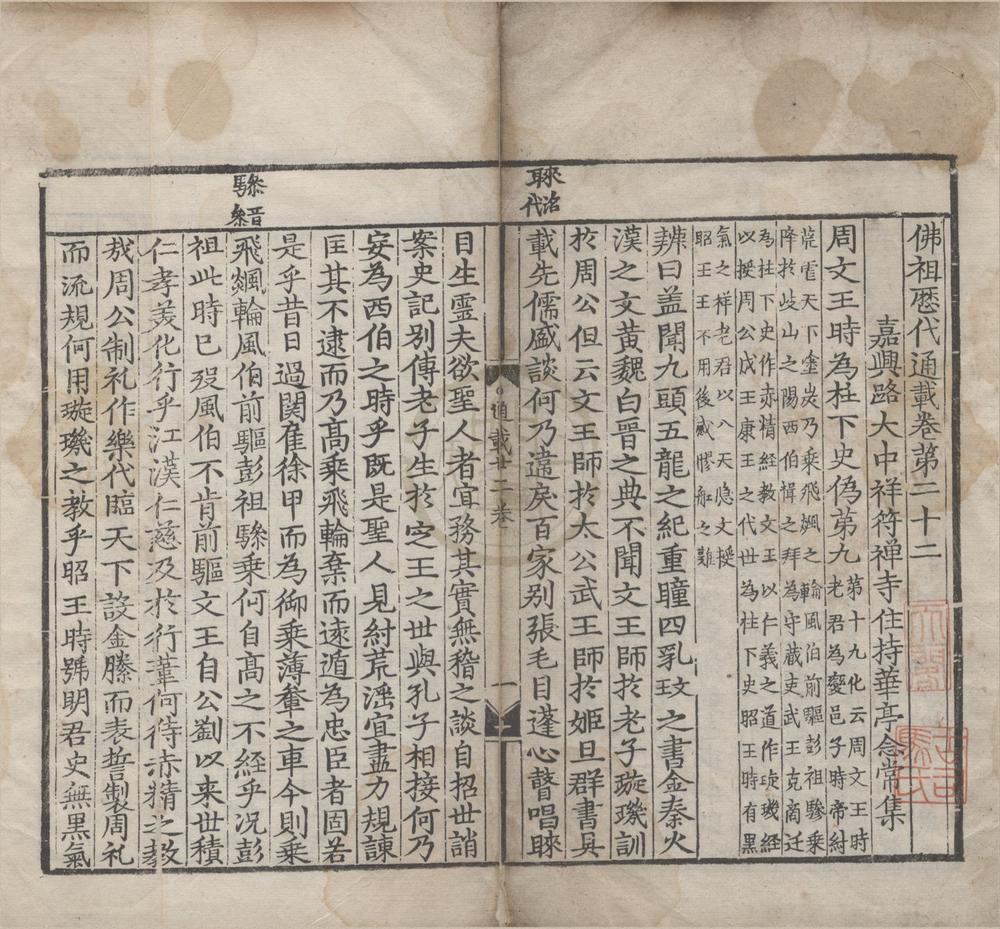 佛祖歷代通載卷第二十二
嘉興路大中祥符禪寺住持華亭念常集
周文王時為柱下史偽第九
第十九化云周文王時
老君為變邑子時帝紂
荒雪天下塗炭乃乘飛颷之輪風伯前驅彭祖驂乗
降扵歧山之陽西伯揖之拜為守藏吏武王克商迁
為柱下史作赤精經教文王以仁義之道作琁璣経
以授周公成王康王之代世為柱下史昭王時有黑
氣之祥老君以八天隐文授
昭王王不用後貳膠舡之難
辨曰盖聞九頭五龍之紀重瞳四乳玟之書金秦火
漢之文黃魏白晉之典不聞文王師扵老子璇璣訓
扵周公但云文王師扵太公武王師扵姬旦群書具
載先儒盛談何乃違戾百家别張毛目蓬心瞽唱睞
目生靈夫欲聖人者宜務其實無稽之談自招世誚
案史記别傳老子生扵定王之世與孔子相接何乃
妄為西伯之時乎既是聖人見紂荒滛宜盡力規諌
匡其不逮而乃髙乘飛輪棄而逺遁為忠臣者固若
是乎昔日過関隹徐甲而為御乘薄軬之車今則乗
飛颷輪風伯前驅彭祖驂乗何自髙之不経乎况彭
祖此時已殁風伯不肯前驅文王自公劉以来世積
仁孝羙化行乎江漢仁慈及扵行葦何待赤精之教
㢤周公制礼作樂代臨天下設金縢而表誓製周礼
而流規何用璇璣之教乎昭王時號明君史無黒氣
通載廿二卷
一
睞
洛代
驂